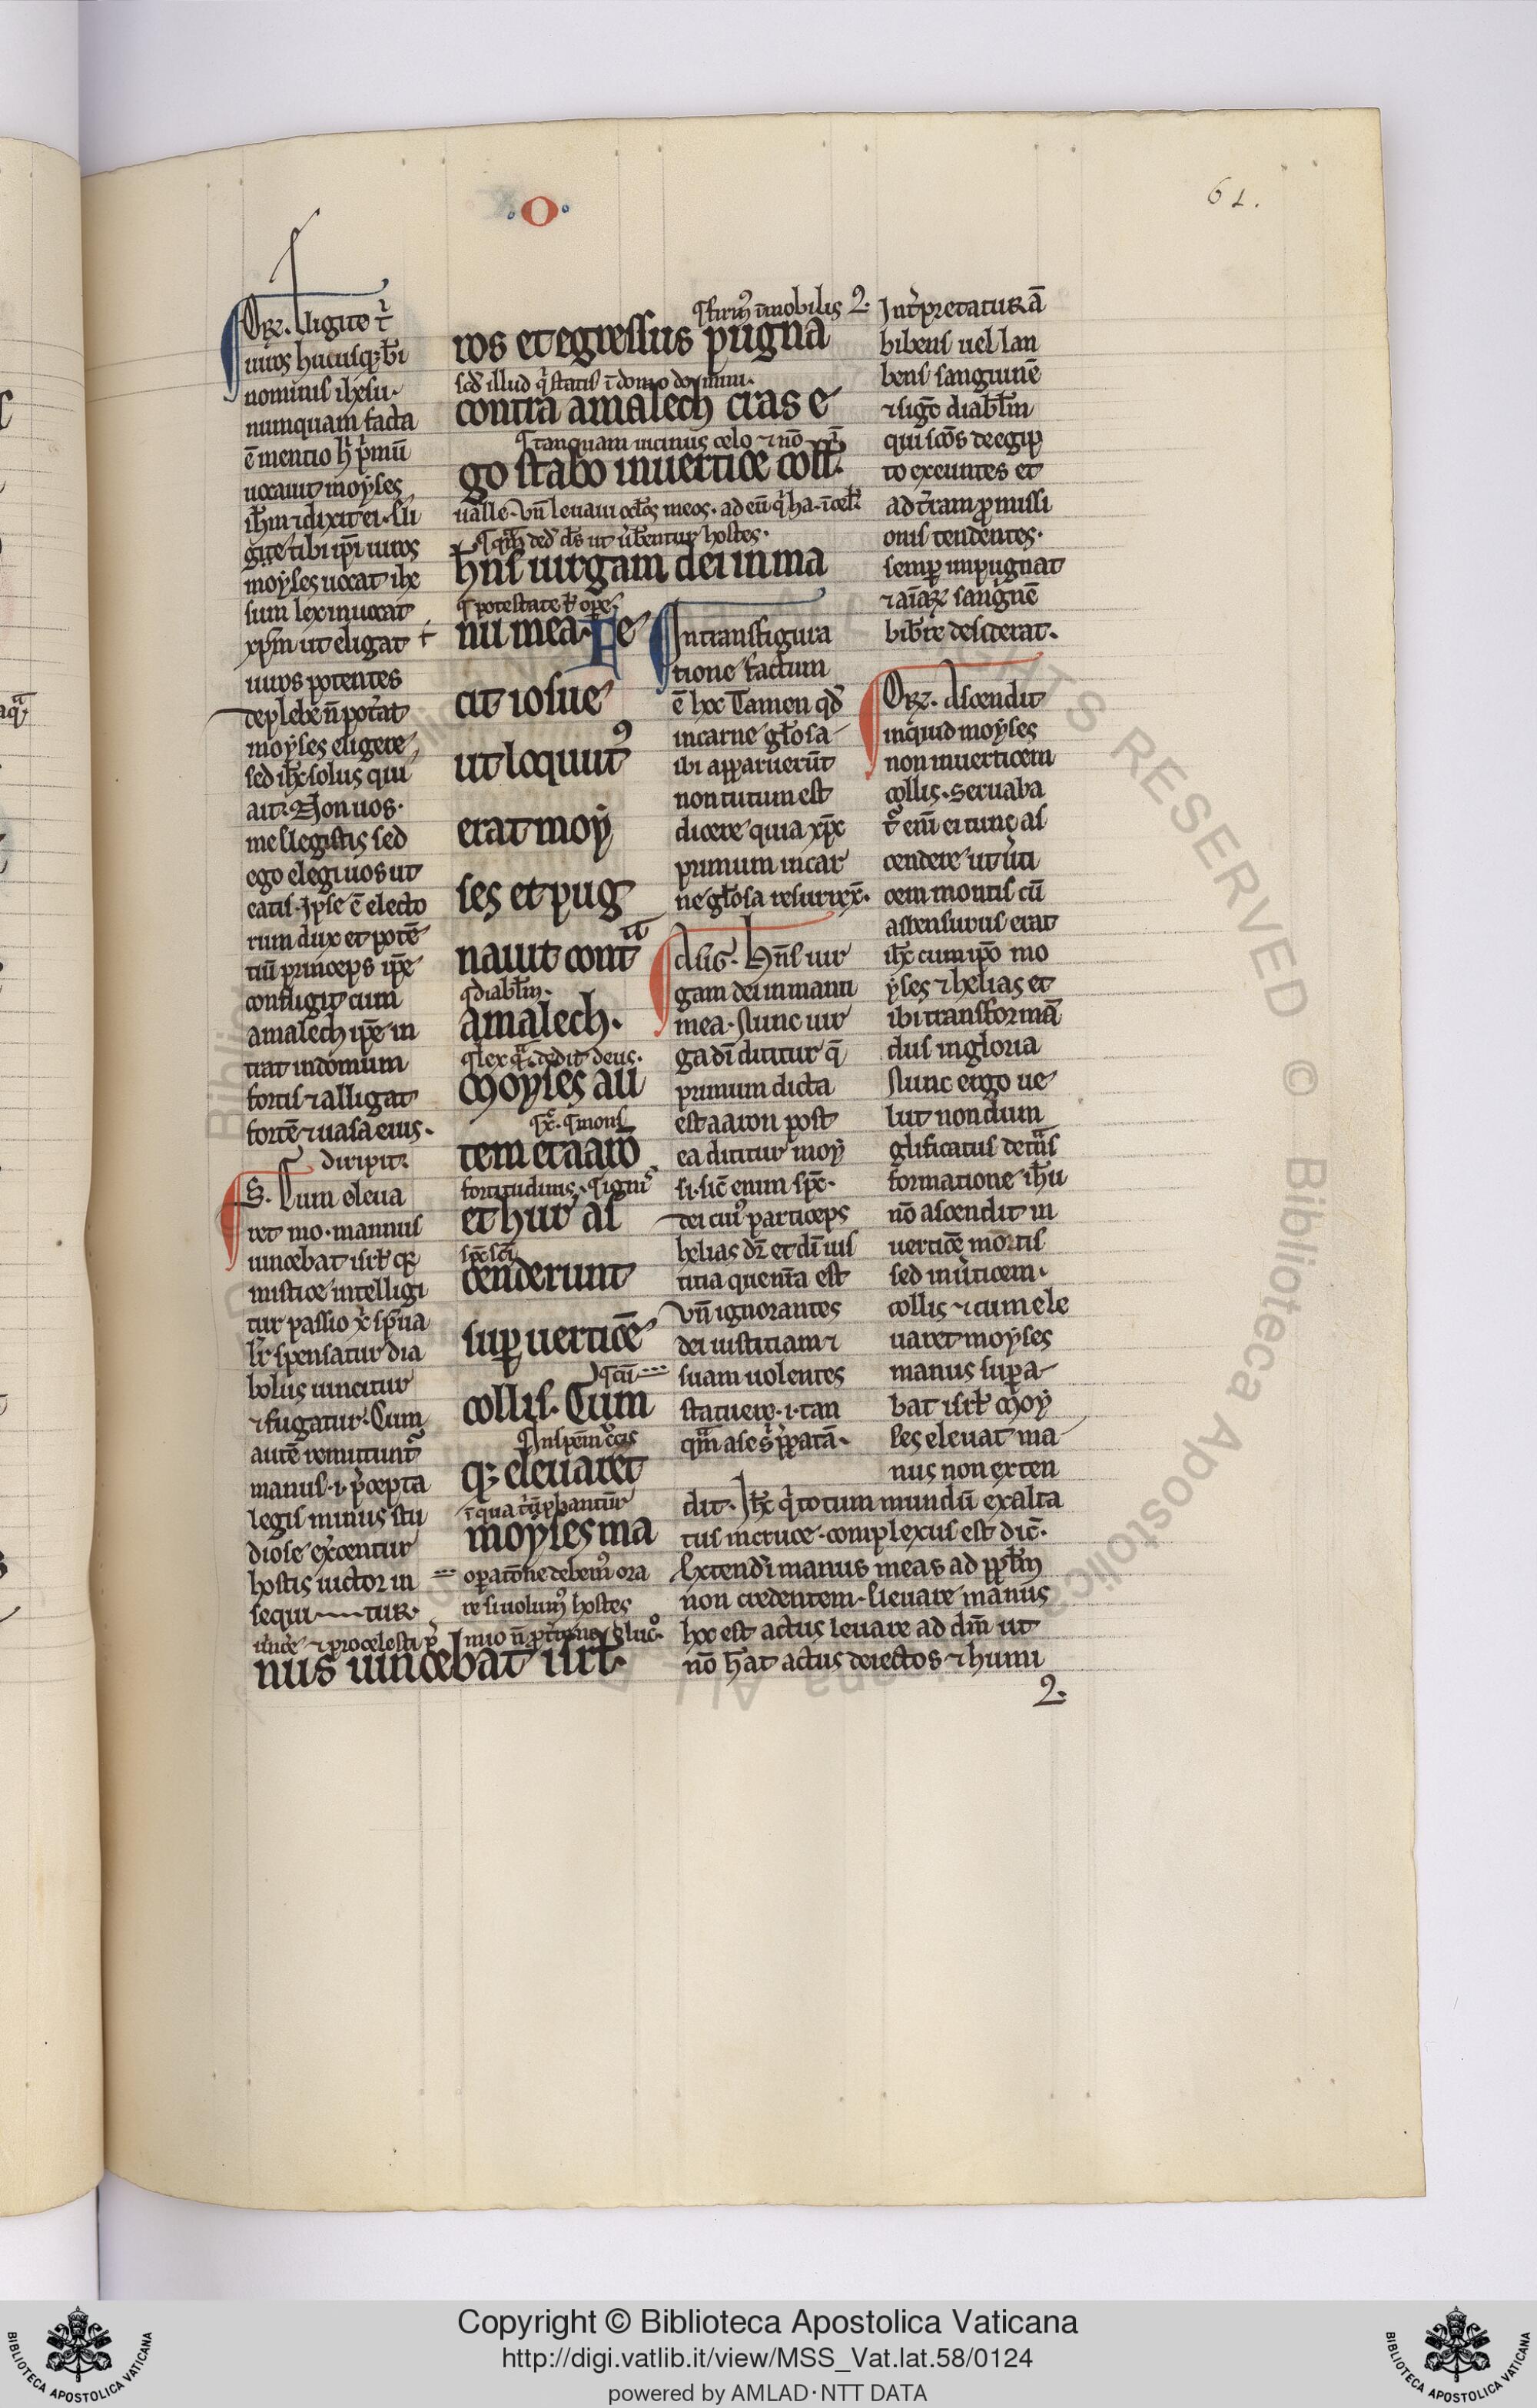 61.
·O·
Orẜ. Eligite t̄
uiros hucusqȝ b̄i
nominis ihesu·
nunquam facta
ē mentio h͛ p̄mū
uocauit moẏses
ih̄m ⁊ dixit ei· Eli
gite tibi ip̄i uiros
moẏses uocat ihe
sum lex inuocat
xp̄m ut eligat t̄
uiros potentes
de plebe n̄ pot̄at
moẏses eligere
sed ih̄c solus qui
ait· Non uos·
me elegistis sed
ego elegi uos ut
eatis· Ipse ē electo
rum dux et potē
tiū princeps ip̄e
confligit cum
amalech ip̄e in
trat in domum
fortis ⁊ alligat
fortē ⁊ uasa eius·
diripit·
S· Cum eleua
ret mo· manus
uincebat isrł qȝ
mistice intelligi
tur passio xp̄i sp̄ua
lr̄ spensatur dia
bolus uincitur
⁊ fugatur· Cum
autē remittunt᷑
manus· i· p̄cepta
legis minus stu
diose ex̄centur
hostis uictor in
sequitur
¶firm᷒ īmobilis 2·
ros et egressus pugna
scd̄ illud q̄ statis ī domo domini·
contra amalech cras e
¶tanquam uicinus celo ⁊ nō ī
go stabo in uertice coll̄·
ualle· Vn̄ leuaui oc̄los meos· ad eū q̄ ha· ī cel̄
¶quā ded̄ d̄s ut ūb̄entur hostes·
h̄ns uirgam dei in ma
¶potestate ł ope·
nu mea· Fe
cit iosue
ut locut᷒
erat moẏ
ses et pug
nauit cont̄ᵃ
¶diabł̄m·
amalech·
¶lex q̄ᵃ· dedit deus·
Moyses au
¶xp̄c· ¶mons
tem et aarō
fortitudinis· ¶ignis
et hur as
sp̄c sc̄i
cenderunt
sup uerticē
¶cū
collis· Cum
¶In spem ⁊c̄is
qȝ eleuaret
ī qua
moẏses ma
opatōne debem᷒ ora
re si uolum᷒ hostes
uīce· ⁊ pro celesti p̄ mio
nus uincebat isrł·
In transfigura
tione factum
ē hoc Tamen qd̄
in carne gl̄osa
ibi apparuerūt
non tutum est
dicere quia xp̄c
primum in car
ne gl̄osa resurrex̄·
Aug· H̄ns uir
gam dei in manu
mea· Nunc uir
ga dī dicitur q̄
primum dicta
est aaron post
ea dicitur moẏ
si· sic enim sp̄c·
dei cui᷒ particeps
helias dr̄ et dī ius
titia quem̄a est
Vn̄ ignorantes
dei iustitiam ⁊
suam uolentes
statuere· i· tan
qᵃm a se s̄ p̄patā·
Int̄pretatur ā
bibens uel lan
bens sanguinē
⁊ sig̅t diabł̄m
qui sc̄os de egip
to exeuntes et
ad t̄ram promissi
onis tendentes·
semp impugnat
⁊ aīaꝝ sanguinē
bib̄e desiderat·
Orẜ· Ascendit
inquid moẏses
non in uerticem
collis· Seruaba
t᷑ enī ei tunc as
cendere ut ūti
cem montis cū
ascensurus erat
ih̄c cum ip̄o mo
ẏses ⁊ helias et
ibi transformā
dus in gloria
Nunc ergo ue
lut nondum
glificatus de tᵃns
formatione ih̄u
nō ascendit in
uerticē montis
sed in ūticem·
collis ⁊ cum ele
uaret moẏses
manus supa
bat isrł Moẏ
ses eleuat ma
nus non exten
dit· Ih̄c q̄ totum mundū exalta
tus in cruce· complexus est dic̄·
Extendi manus meas ad ppł̄m
non credentem· Eleuare manus
hoc est actus leuare ad dm̄ ut
nō h̄at actus deiectos ⁊ humi
2·
Copyright © Biblioteca Apostolica Vaticana
http://digi.vatlib.it/view/MSS_Vat.lat.58/0124
powered by AMLAD·NTT DATA
BIBLIOTECA APOSTOLICA VATICANA
BIBLIOTECA APOSTOLICA VATICANA